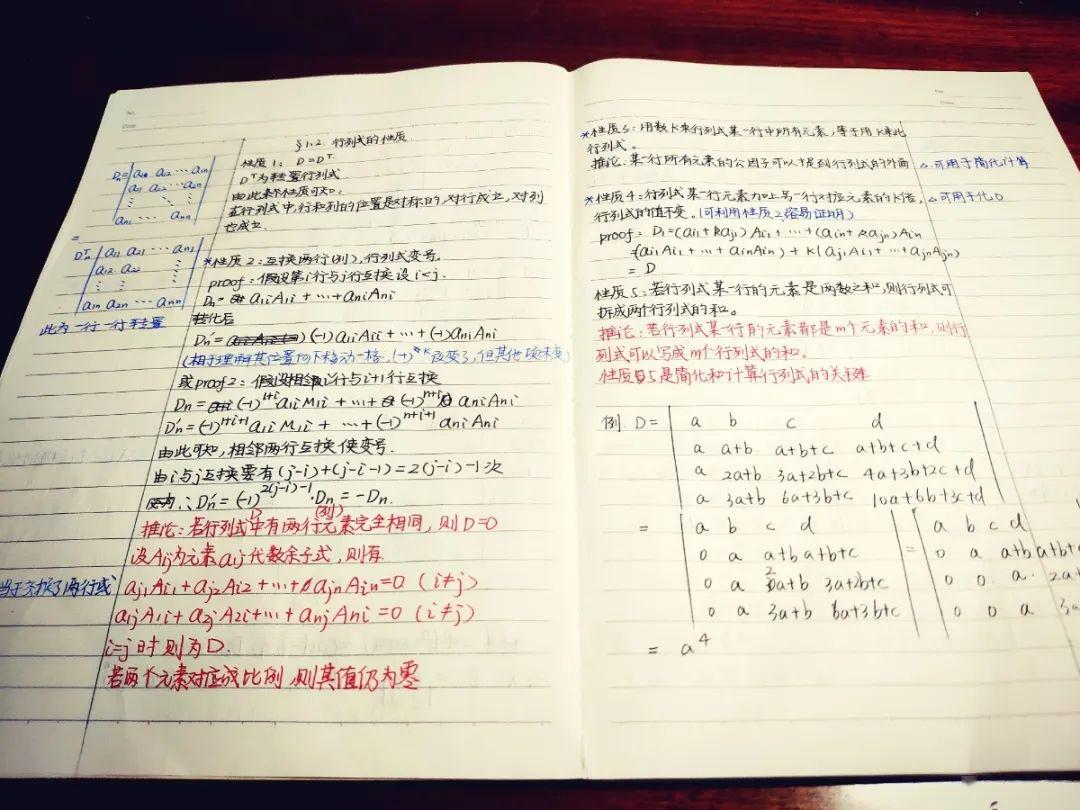 §1.2. 行列式的性质
性质1: D=Dᵀ
Dᵀ为转置行列式
由此条性质可知。
在行列式中,行和列的位置是对称的,对行成立,对列
也成立.
Dₙ= | a₁₁ a₁₂ … a₁ₙ
a₂₁ a₂₂ … a₂ₙ
⋮ ⋱ ⋮
aₙ₁ … aₙₙ |
=
Dₙᵀ | a₁₁ a₂₁ … aₙ₁
a₁₂ a₂₂ ⋮
⋮ ⋮ ⋮
a₁ₙ a₂ₙ … aₙₙ |
此为一行一行转置
*性质2:互换两行(列),行列式变号.
proof:假设第i行与j行互换 设i<j.
Dₙ= a₁ᵢA₁ᵢ + … + aₙᵢAₙᵢ
转化后
Dₙ′= (-1) a₁ᵢA₁ᵢ + … + (-1)aₙᵢAₙᵢ
或proof2:假设相邻i行与i+1行互换
Dₙ = (-1)¹⁺ⁱ a₁ᵢM₁ᵢ + … + (-1)ⁿ⁺ⁱ aₙᵢAₙᵢ
Dₙ′= (-1)¹⁺ⁱ⁺¹ a₁ᵢM₁ᵢ + … + (-1)ⁿ⁺ⁱ⁺¹ aₙᵢAₙᵢ
由此可知,相邻两行互换使变号.
由i与j互换要有(j-i)+(j-i-1)=2(j-i)-1次
∴Dₙ′= (-1)²⁽ʲ⁻ⁱ⁾⁻¹·Dₙ = -Dₙ.
推论:若行列式D中有两行(列)元素完全相同,则D=0
设Aᵢⱼ为元素aᵢⱼ代数余子式,则有
当于交换了两行或
aⱼ₁Aᵢ₁ + aⱼ₂Aᵢ₂ + … + aⱼₙAᵢₙ=0 (i≠j)
a₁ⱼA₁ᵢ + a₂ⱼA₂ᵢ + … + aₙⱼAₙᵢ =0 (i≠j)
i=j时则为D.
若两个元素对应成比例,则其值仍为零
*性质3:用数K乘行列式某一行中所有元素,等于用K乘此
行列式。
推论:某一行所有元素的公因子可以提到行列式的外面 △可用于简化计算
*性质4:行列式某一行元素加上另一行对应元素的K倍, △可用于化0
行列式的值不变。(可利用性质2,容易证明)
proof: D₁=(aᵢ₁+kaⱼ₁)Aᵢ₁ + … + (aᵢₙ+kaⱼₙ)Aᵢₙ
=(aᵢ₁Aᵢ₁ + … + aᵢₙAᵢₙ) + K(aⱼ₁Aᵢ₁ + … + aⱼₙAⱼₙ)
= D
性质5:若行列式某一行的元素是两数之和,则行列式可
拆成两个行列式的和。
推论:若行列式某一行的元素都是m个元素的和,则行
列式可以写成m个行列式的和。
性质5是简化和计算行列式的关键
例. D= | a b c d
a a+b a+b+c a+b+c+d
a 2a+b 3a+2b+c 4a+3b+2c+d
a 3a+b 6a+3b+c 10a+6b+3c+d |
= | a b c d
0 a a+b a+b+c
0 a 2a+b 3a+2b+c
0 a 3a+b 6a+3b+c |
= | a b c d
0 a a+b a+b+c
0 0 a 2a+
0 0 a 3a
= a⁴